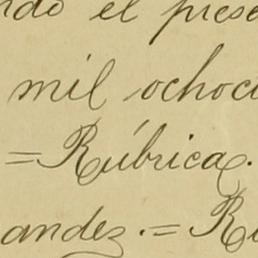 ndo el prese
mil ochoci
=Rúbrica.
andez.=Rú